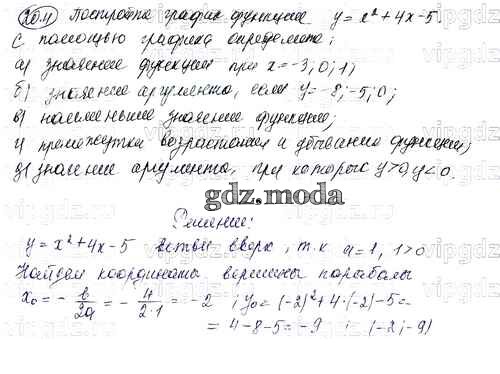 20.4 Постройте график функции y = x² + 4x - 5.
С помощью графика определите:
а) значение функции при x = -3; 0; 1;
б) значение аргумента, если y = -8; -5; 0;
в) наименьшее значение функции;
г) промежутки возрастания и убывания функции;
д) значение аргумента, при которых y>0, y<0.
gdz.moda
Решение:
y = x² + 4x - 5 ветви вверх, т.к a = 1, 1 > 0
Найдем координаты вершины параболы
x₀ = - b/2a = - 4/2·1 = -2 ; y₀ = (-2)² + 4·(-2) - 5 =
= 4 - 8 - 5 = -9 ; (-2; -9)